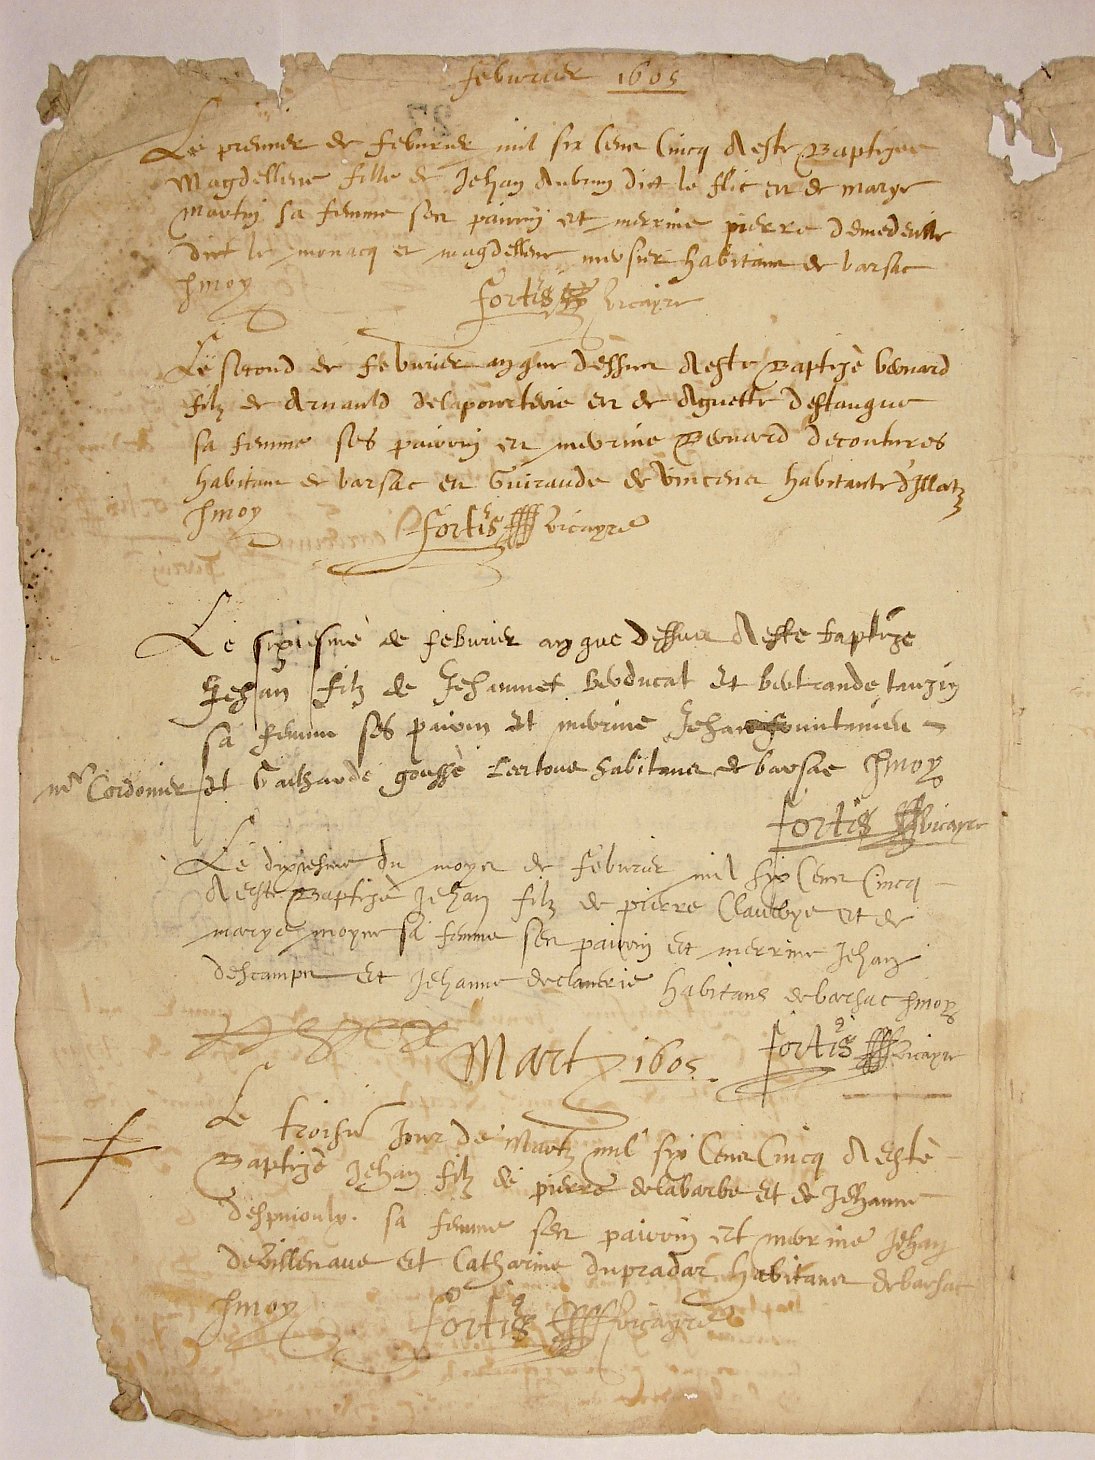 feburier 1605
Le premier de feburier mil six Cens Cincq A este Baptizee
Magdellene fille de Jehan Aubrun dict le flic et de marye
Martin sa femme ses pairin et merrine pierre demedeville
dict le monacq et magdellene habitans de barsac
Fortis vicayre
Le second de feburier an que dessus A este Baptizé benard
filz de Arnauld delapourterie et de Agnette destangue
sa femme ses pairin et merrine Benard decoutures
habitant de barsac et Guiraude de Vincens habitante d'Illatz
Fortis vicayre
Le sixiesme de feburier an que dessus A este baptizé
Jehan filz de Jehannet beuducat et bertrande tauzin
sa femme ses pairin et merrine Jehan
mre Cordonier et Gailharde habitans de barsac
Fortis vicayre
Le dixiesme du moys de feburier mil six Cens Cincq
A este Baptizé Jehan filz de pierre et de
marye moyne sa femme ses pairin et merrine Jehan
descamps et Jehanne declaverie habitans de barsac
Fortis vicayre
Martz 1605
Le troisie Jour de Martz mil six Cens Cincq A esté
Baptizé Jehan filz de pierre delabarbe et de Jehanne
sa femme ses pairin et merrine Jehan
deVillenave et Catharine dupradar habitans de barsac
Fortis vicayre